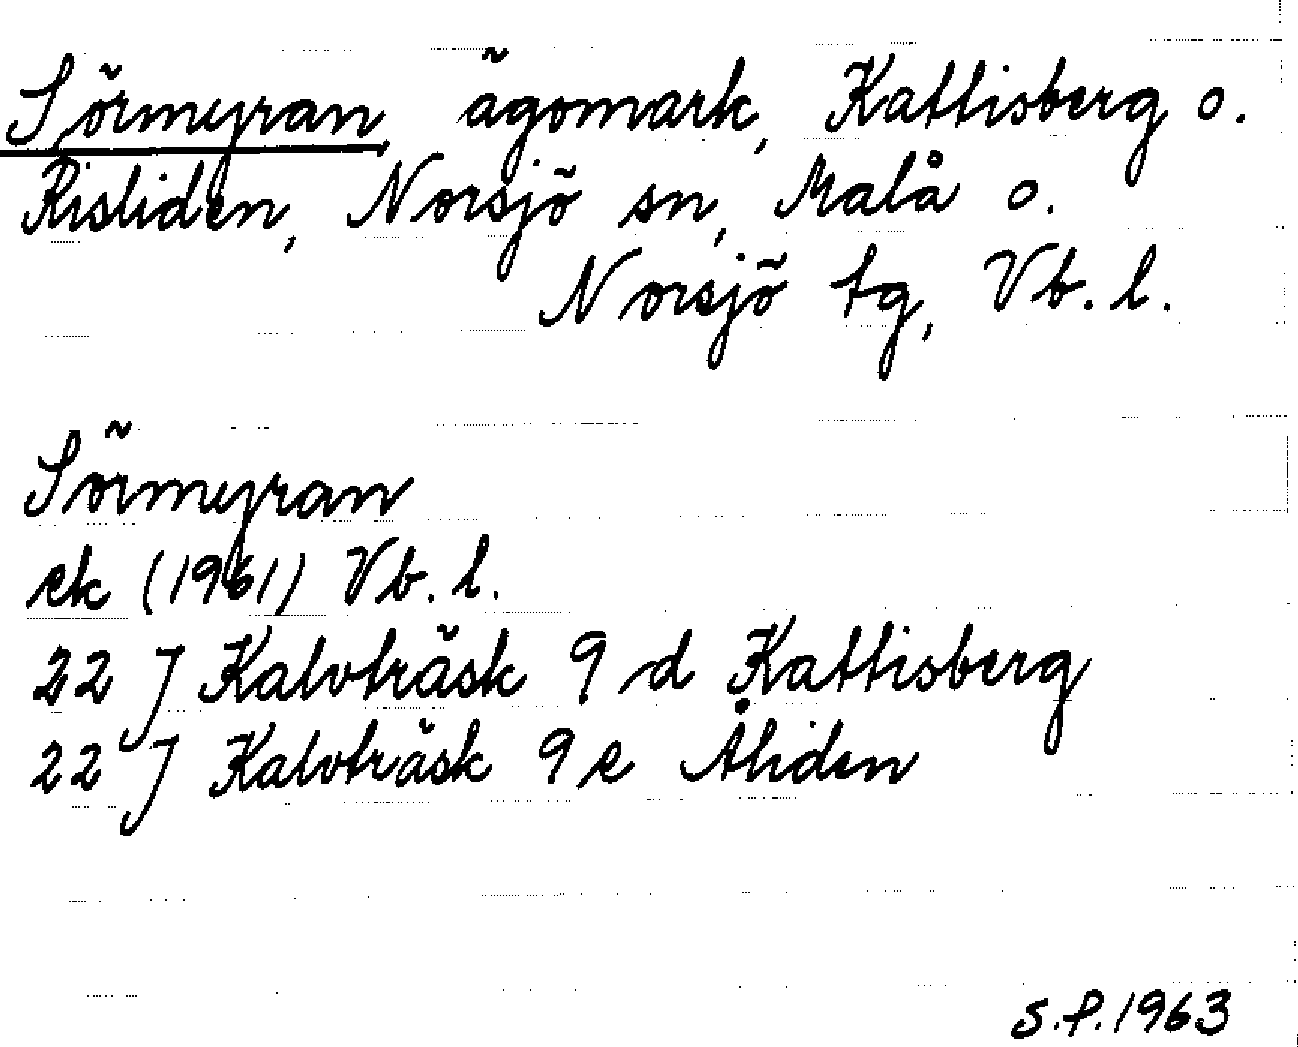 Sörmyran, ägomark, Kattisberg o.
Risliden, Norsjö sn, Malå o.
Norsjö tg, Vb. l.
Sörmyran
ek (1961) Vb. l.
22 J Kalvträsk 9 d Kattisberg
22 J Kalvträsk 9 e Åliden
S.P. 1963